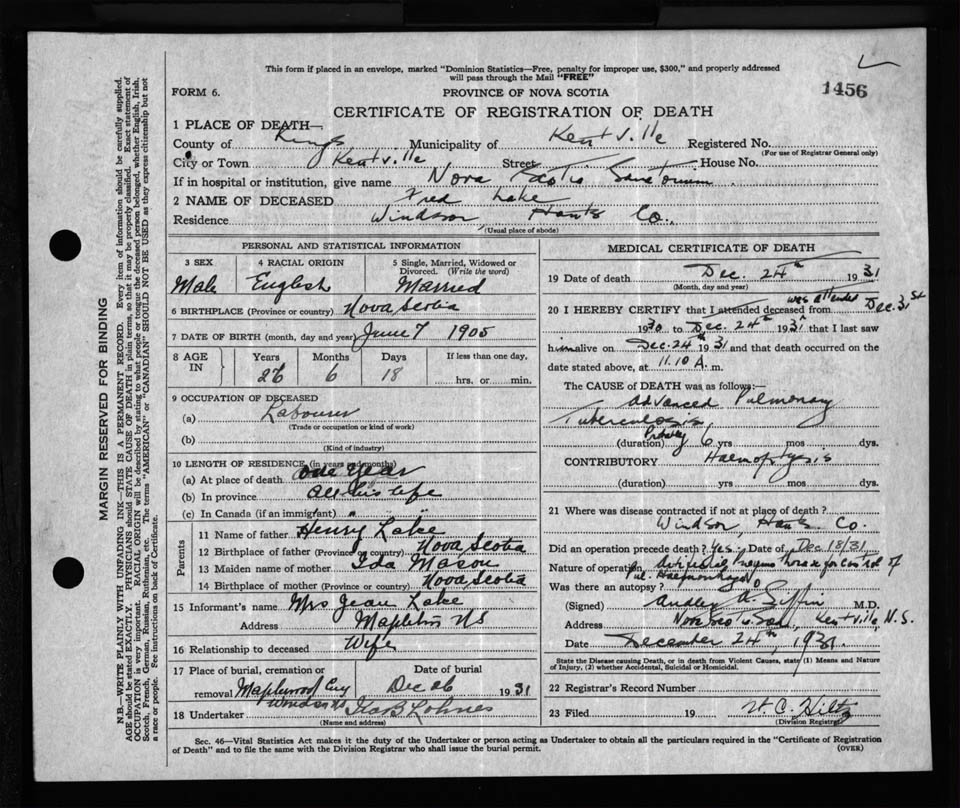 This form if placed in an envelope, marked "Dominion Statistics—Free, penalty for improper use, $300," and properly addressed
will pass through the Mail "FREE"
FORM 6.
PROVINCE OF NOVA SCOTIA
1456
CERTIFICATE OF REGISTRATION OF DEATH
1 PLACE OF DEATH—
County of Kings Municipality of Kentville Registered No.
(For use of Registrar General only)
City or Town Kentville Street House No.
If in hospital or institution, give name Nova Scotia Sanatorium
2 NAME OF DECEASED Fred Lake
Residence Windsor Hants Co.
(Usual place of abode)
PERSONAL AND STATISTICAL INFORMATION
3 SEX 4 RACIAL ORIGIN 5 Single, Married, Widowed or
Divorced. (Write the word)
Male English Married
6 BIRTHPLACE (Province or country) Nova Scotia
7 DATE OF BIRTH (month, day and year) June 7 1905
8 AGE IN Years Months Days If less than one day,
26 6 18 hrs. or min.
9 OCCUPATION OF DECEASED
(a) Labourer
(Trade or occupation or kind of work)
(b)
(Kind of industry)
10 LENGTH OF RESIDENCE (in years and months)
(a) At place of death one year
(b) In province all his life
(c) In Canada (if an immigrant) "
Parents
11 Name of father Henry Lake
12 Birthplace of father (Province or country) Nova Scotia
13 Maiden name of mother Ida Mason
14 Birthplace of mother (Province or country) Nova Scotia
15 Informant's name Mrs Jean Lake
Address Mapleton NS
16 Relationship to deceased Wife
17 Place of burial, cremation or Date of burial
removal Maplewood Cmy Dec 26 1931
Windsor NS
18 Undertaker Lohnes
(Name and address)
MEDICAL CERTIFICATE OF DEATH
19 Date of death Dec. 24th 1931
(Month, day and year)
20 I HEREBY CERTIFY that I attended was attended deceased from Dec. 31st
1930 to Dec. 24th 1931 that I last saw
him alive on Dec. 24th 1931 and that death occurred on the
date stated above, at 11.10 A. m.
The CAUSE OF DEATH was as follows:—
Advanced Pulmonary
Tuberculosis
(duration) Probably 6 yrs mos dys.
CONTRIBUTORY Haemoptysis
(duration) yrs mos dys.
21 Where was disease contracted if not at place of death?
Windsor, Hants. Co.
Did an operation precede death? Yes. Date of Dec 18/31
Nature of operation Artificial Pneumothorax for control of
Pul. Haemorrhage
Was there an autopsy? No
(Signed) M.D.
Address Nova Scotia San, Kentville, N.S.
Date December 24th, 1931.
State the Disease causing Death, or in death from Violent Causes, state (1) Means and Nature
of Injury, (2) whether Accidental, Suicidal or Homicidal.
22 Registrar's Record Number
23 Filed 19 W. C. Hiltz
(Division Registrar)
Sec. 46—Vital Statistics Act makes it the duty of the Undertaker or person acting as Undertaker to obtain all the particulars required in the "Certificate of Registration
of Death" and to file the same with the Division Registrar who shall issue the burial permit.
(OVER)
MARGIN RESERVED FOR BINDING
N.B.—WRITE PLAINLY WITH UNFADING INK—THIS IS A PERMANENT RECORD. Every item of information should be carefully supplied.
AGE should be stated EXACTLY. PHYSICIANS should STATE CAUSE OF DEATH in plain terms, so that it may be properly classified. Exact statement of
OCCUPATION is very important. RACIAL ORIGIN will be described by stating to what people or tongue the deceased person belonged, whether English, Irish,
Scotch, French, German, Russian, Ruthenian, etc. The terms "AMERICAN" or "CANADIAN" SHOULD NOT BE USED as they express citizenship but not
a race or people. See instructions on back of Certificate.